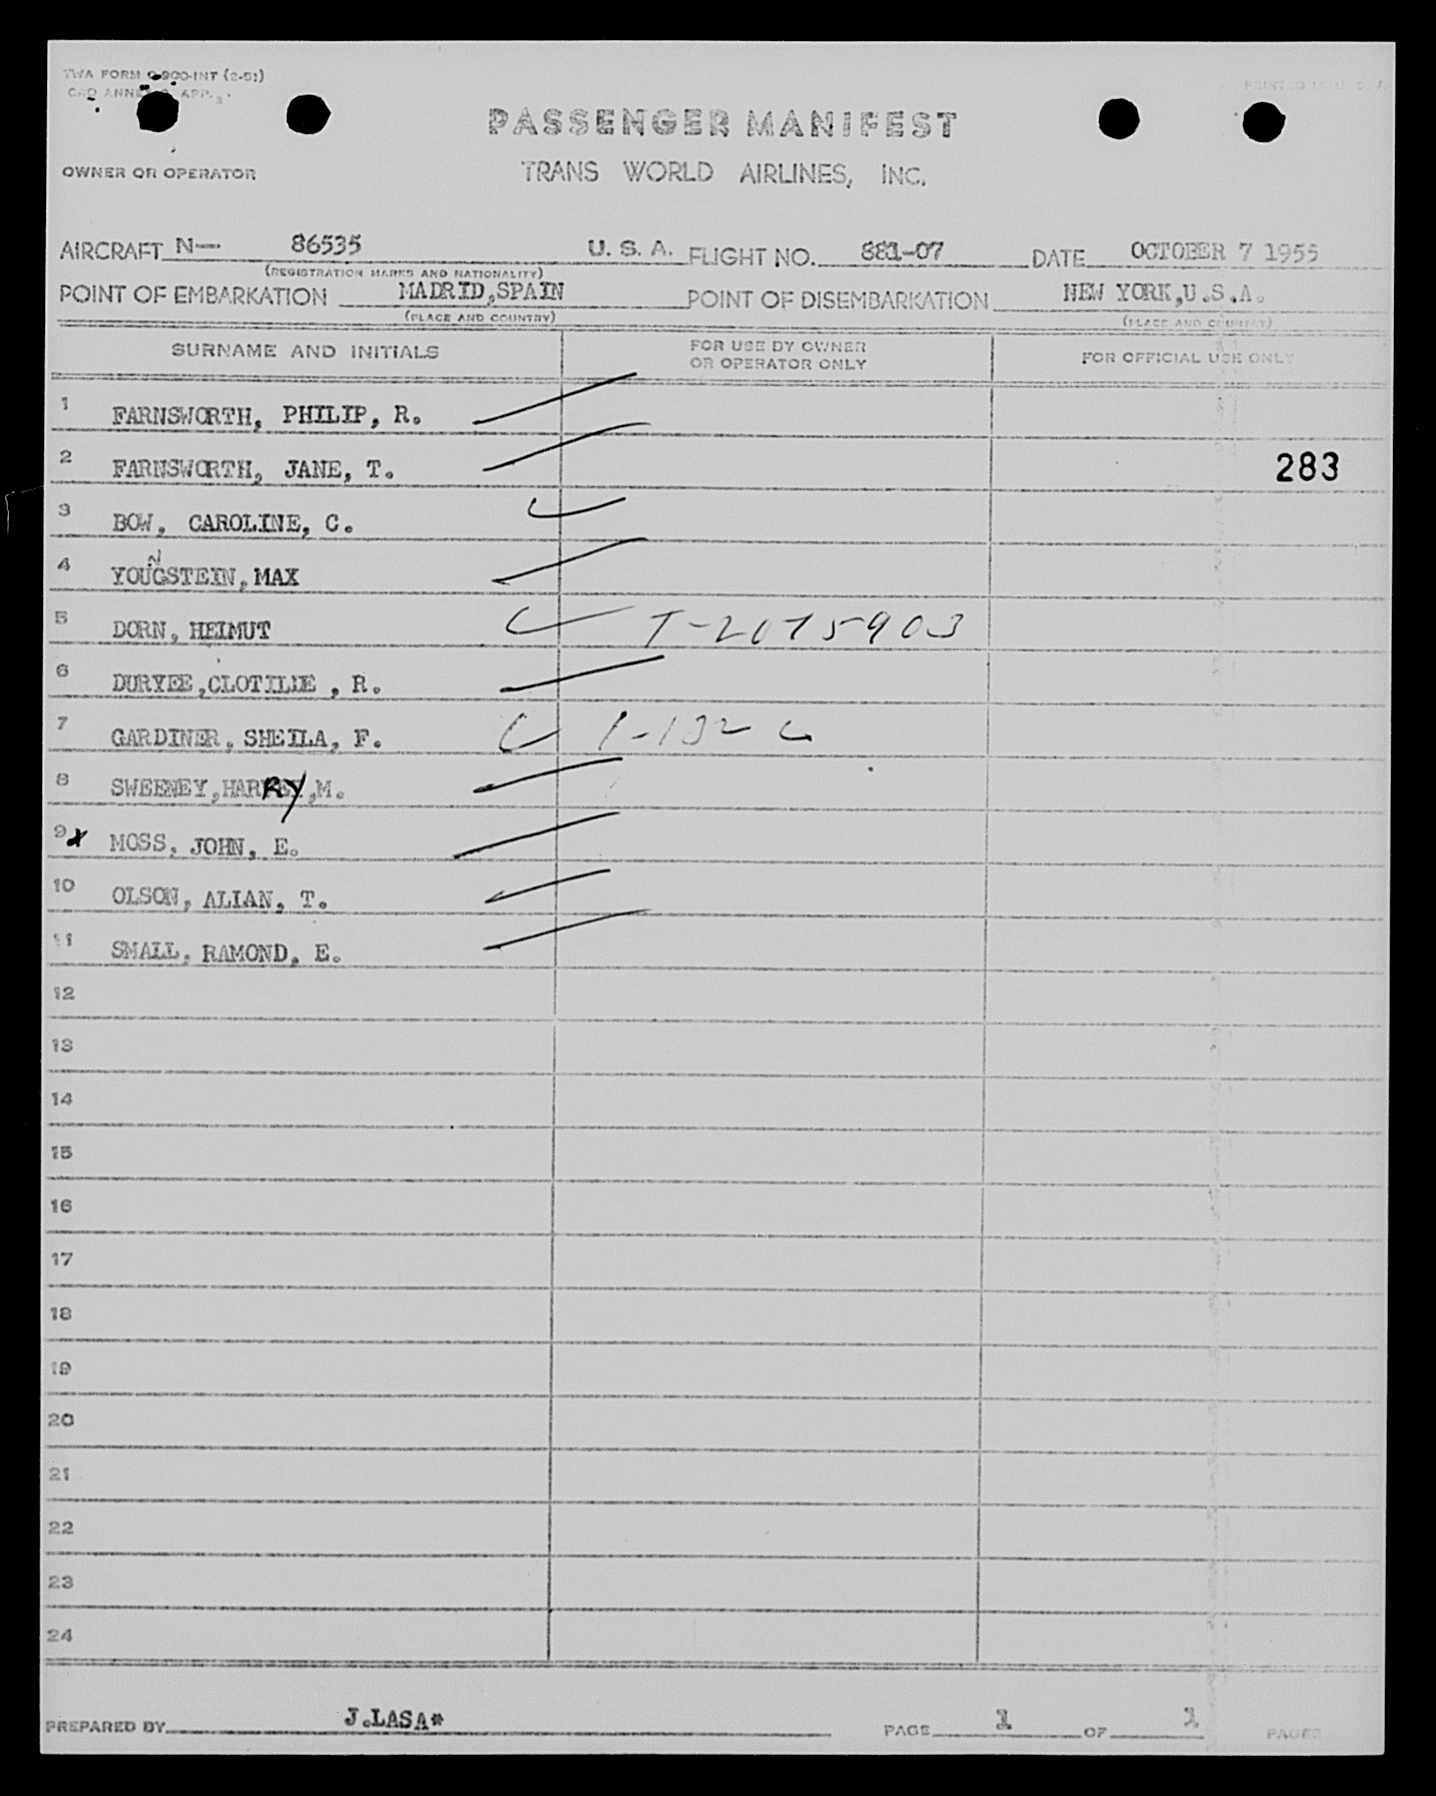 TWA FORM O-900-INT (2-51)
PASSENGER MANIFEST
OWNER OR OPERATOR
TRANS WORLD AIRLINES, INC.
AIRCRAFT N— 86535 U. S. A. FLIGHT NO. 881-07 DATE OCTOBER 7 1955
(REGISTRATION MARKS AND NATIONALITY)
POINT OF EMBARKATION MADRID,SPAIN POINT OF DISEMBARKATION NEW YORK,U.S.A.
(PLACE AND COUNTRY) (PLACE AND COUNTRY)
SURNAME AND INITIALS FOR USE BY OWNER OR OPERATOR ONLY FOR OFFICIAL USE ONLY
1 FARNSWORTH, PHILIP, R.
2 FARNSWORTH, JANE, T. 283
3 BOW, CAROLINE, C.
4 YOUNGSTEIN, MAX
5 DORN, HEIMUT T-2075903
6 DURYEE,CLOTILDE , R.
7 GARDINER, SHEILA, F. 1-132
8 SWEENEY,HARRY,M.
9x MOSS, JOHN, E.
10 OLSON, ALIAN, T.
11 SMALL, RAMOND, E.
12
13
14
15
16
17
18
19
20
21
22
23
24
PREPARED BY J.LASA* PAGE 1 OF 1 PAGES